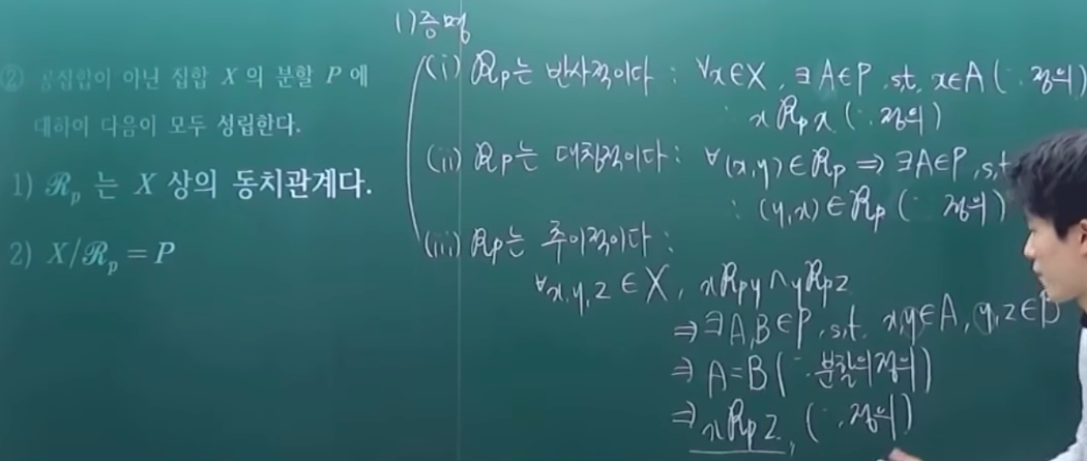 ② 공집합이 아닌 집합 X 의 분할 P 에
대하여 다음이 모두 성립한다.
1) ℛ_p 는 X 상의 동치관계다.
2) X/ℛ_p = P
1) 증명
(i) ℛp는 반사적이다 : ∀x∈X, ∃A∈P, s,t, x∈A (∵ 정의)
∴ xℛpx (∵ 정의)
(ii) ℛp는 대칭적이다 : ∀(x,y)∈ℛp ⇒ ∃A∈P, s,t
∴ (y,x)∈ℛp (∵ 정의)
(iii) ℛp는 추이적이다 :
∀x,y,z∈X, xℛpy∧yℛpz
⇒ ∃A,B∈P, s,t, x,y∈A, y,z∈B
⇒ A=B (∵ 분할의 정의)
⇒ xℛpz, (∵ 정의)